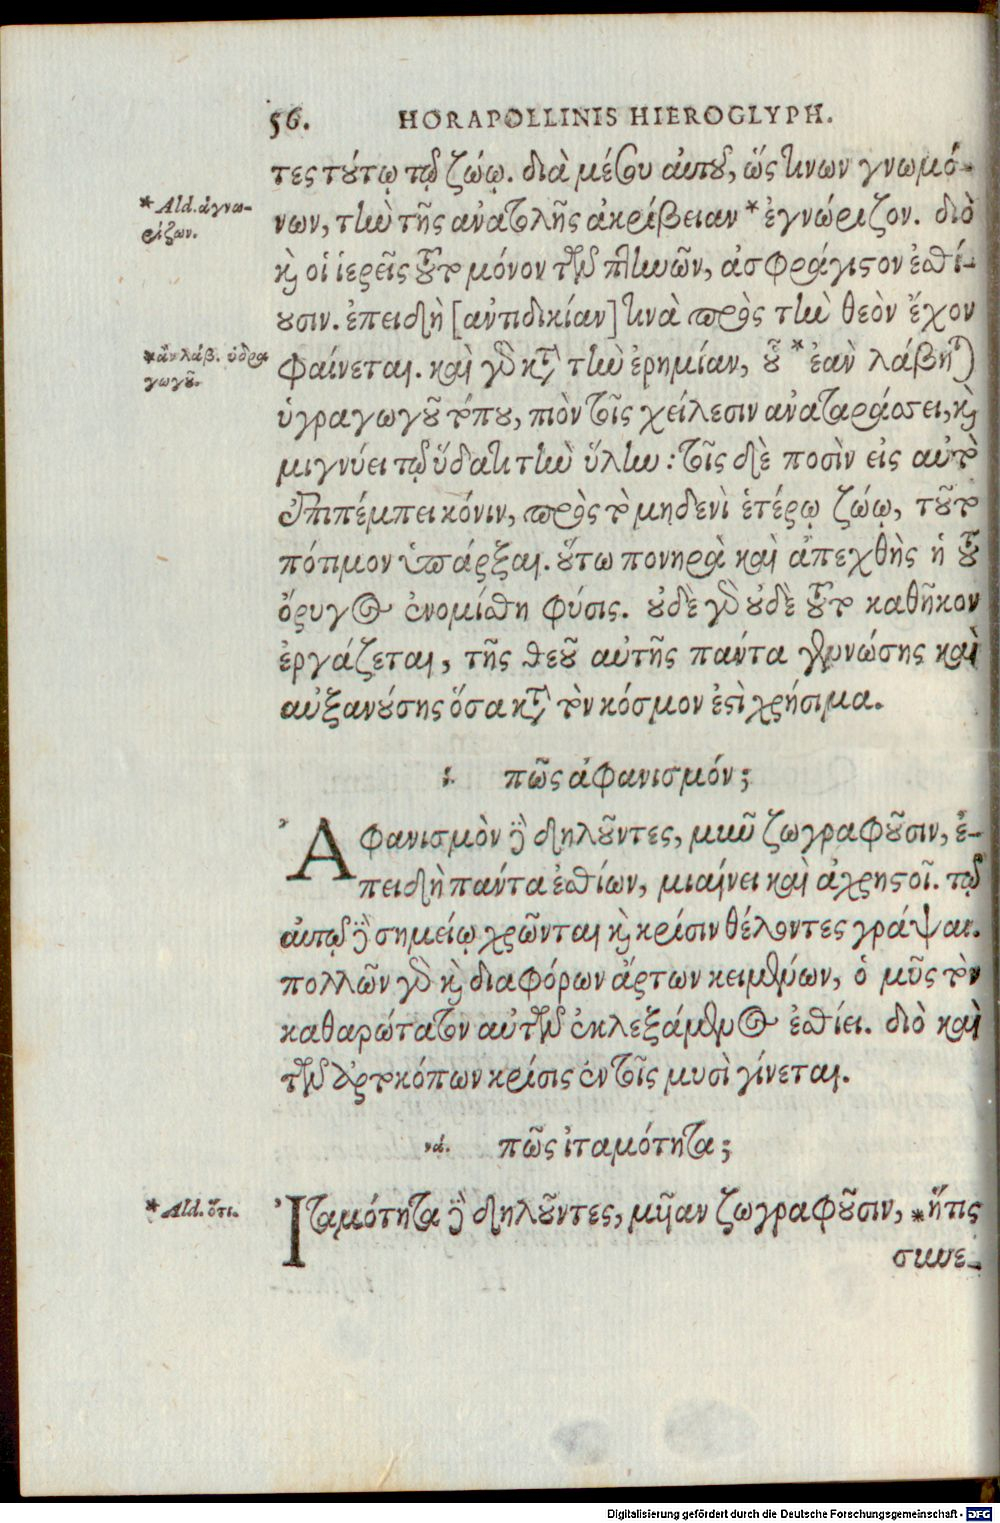 56. HORAPOLLINIS HIEROGLYPH.
τες τούτῳ τῷ ζώῳ. διὰ μέσου αὐτοῦ, ὥς τινων γνωμό-
* Ald. ἀγνω-
ρίζων.
νων, τὴν τῆς ἀνατολῆς ἀκρίβειαν * ἐγνώριζον. διὸ
καὶ οἱ ἱερεῖς τοῦτο μόνον τῶν πτηνῶν, ἀσφράγιστον ἐσθί-
ουσιν. ἐπειδὴ [ἀντιδικίαν] τινὰ πρὸς τὴν θεὸν ἔχον
* ἂν λάβ. ὑδρα
γωγοῦ.
φαίνεται. καὶ γὰρ κατὰ τὴν ἐρημίαν, οὗ * ἐὰν λάβηται
ὑγραγωγοῦ τόπου, πιὸν τοῖς χείλεσιν ἀναταράσσει, καὶ
μιγνύει τῷ ὕδατι τὴν ὕλην : τοῖς δὲ ποσὶν εἰς αὐτὸ
ἐπιπέμπει κόνιν, πρὸς τὸ μηδενὶ ἑτέρῳ ζώῳ, τοῦτο
πότιμον ὑπάρξαι. οὕτω πονηρὰ καὶ ἀπεχθὴς ἡ τοῦ
ὄρυγος ἐνομίσθη φύσις. οὐδὲ γὰρ οὐδὲ τοῦτο καθῆκον
ἐργάζεται, τῆς θεοῦ αὐτῆς πάντα γεννώσης καὶ
αὐξανούσης ὅσα κατὰ τὸν κόσμον ἐστὶ χρήσιμα.
ν. πῶς ἀφανισμόν;
Ἀφανισμὸν δὲ δηλοῦντες, μῦν ζωγραφοῦσιν, ἐ-
πειδὴ πάντα ἐσθίων, μιαίνει καὶ ἀχρηστοῖ. τῷ
αὐτῷ δὲ σημείῳ χρῶνται καὶ κρίσιν θέλοντες γράψαι.
πολλῶν γὰρ καὶ διαφόρων ἄρτων κειμένων, ὁ μῦς τὸν
καθαρώτατον αὐτῶν ἐκλεξάμενος ἐσθίει. διὸ καὶ
τῶν ἀρτοκόπων κρίσις ἐν τοῖς μυσὶ γίνεται.
να. πῶς ἰταμότητα;
* Ald. ὅτι.
Ἰταμότητα δὲ δηλοῦντες, μυῖαν ζωγραφοῦσιν, * ἥτις
συνε-
Digitalisierung gefördert durch die Deutsche Forschungsgemeinschaft - DFG